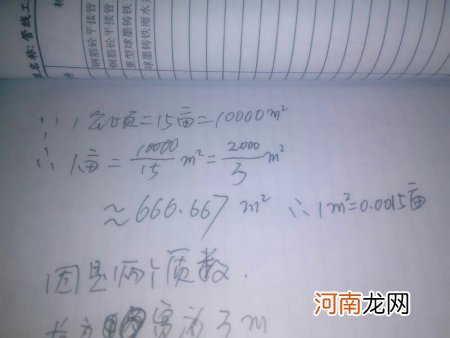 名称: 管线工
钢筋砼平接管
钢筋砼平接管
重型球墨铸铁
球墨铸铁雨水
∵ 1公顷=15亩=10000m²
∴ 1亩 = 10000/15 m² = 2000/3 m²
≈666.667 m² ∴1m²=0.0015亩
因是两个质数.
宽为3m
河南龙网